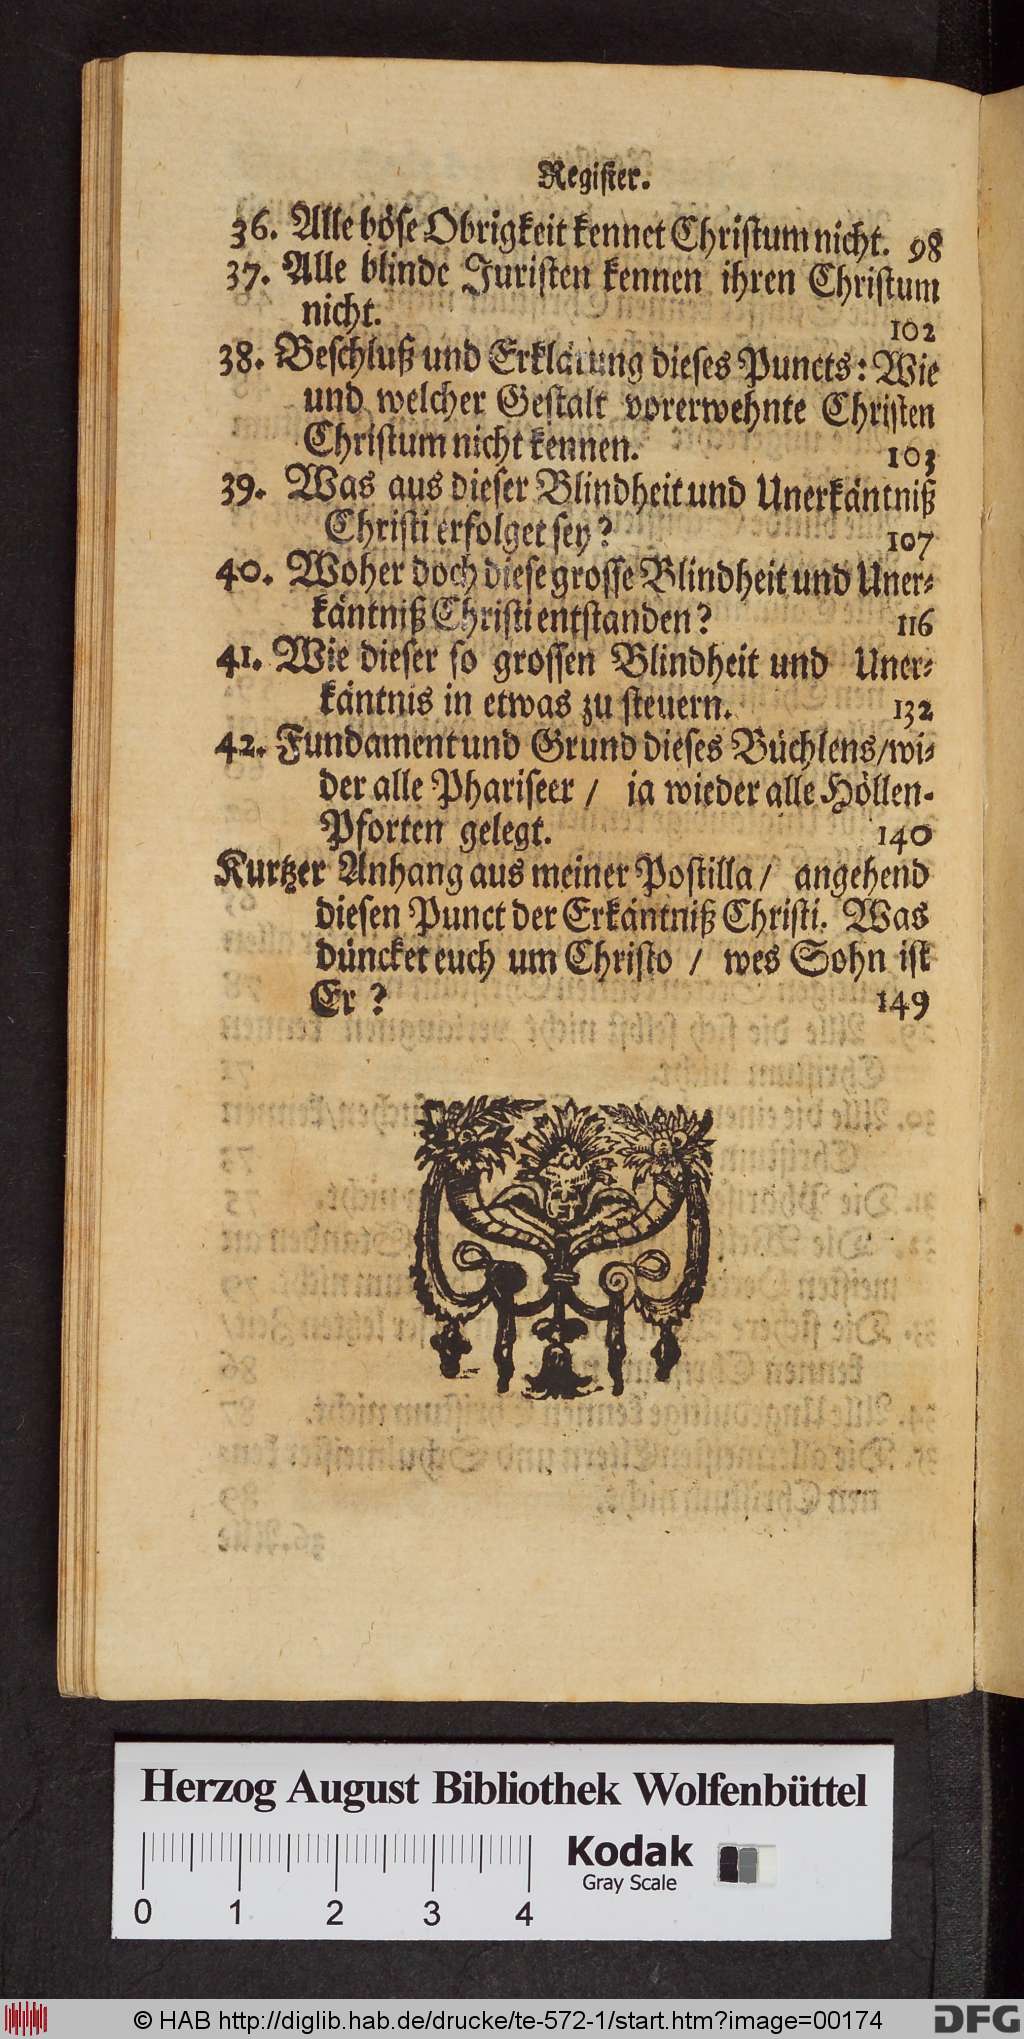 Register.
36. Alle böse Obrigkeit kennet Christum nicht. 98
37. Alle blinde Juristen kennen ihren Christum
nicht. 102
38. Beschluß und Erklärung dieses Puncts: Wie
und welcher Gestalt vorerwehnte Christen
Christum nicht kennen. 103
39. Was aus dieser Blindheit und Unerkäntniß
Christi erfolget sey? 107
40. Woher doch diese grosse Blindheit und Uner-
käntniß Christi entstanden? 116
41. Wie dieser so grossen Blindheit und Uner-
käntnis in etwas zu steuern. 132
42. Fundament und Grund dieses Büchlens/wi-
der alle Phariseer / ja wieder alle Höllen-
Pforten gelegt. 140
Kurtzer Anhang aus meiner Postilla / angehend
diesen Punct der Erkäntniß Christi. Was
düncket euch um Christo / wes Sohn ist
Er? 149
Herzog August Bibliothek Wolfenbüttel
Kodak
Gray Scale
0 1 2 3 4
© HAB http://diglib.hab.de/drucke/te-572-1/start.htm?image=00174
DFG